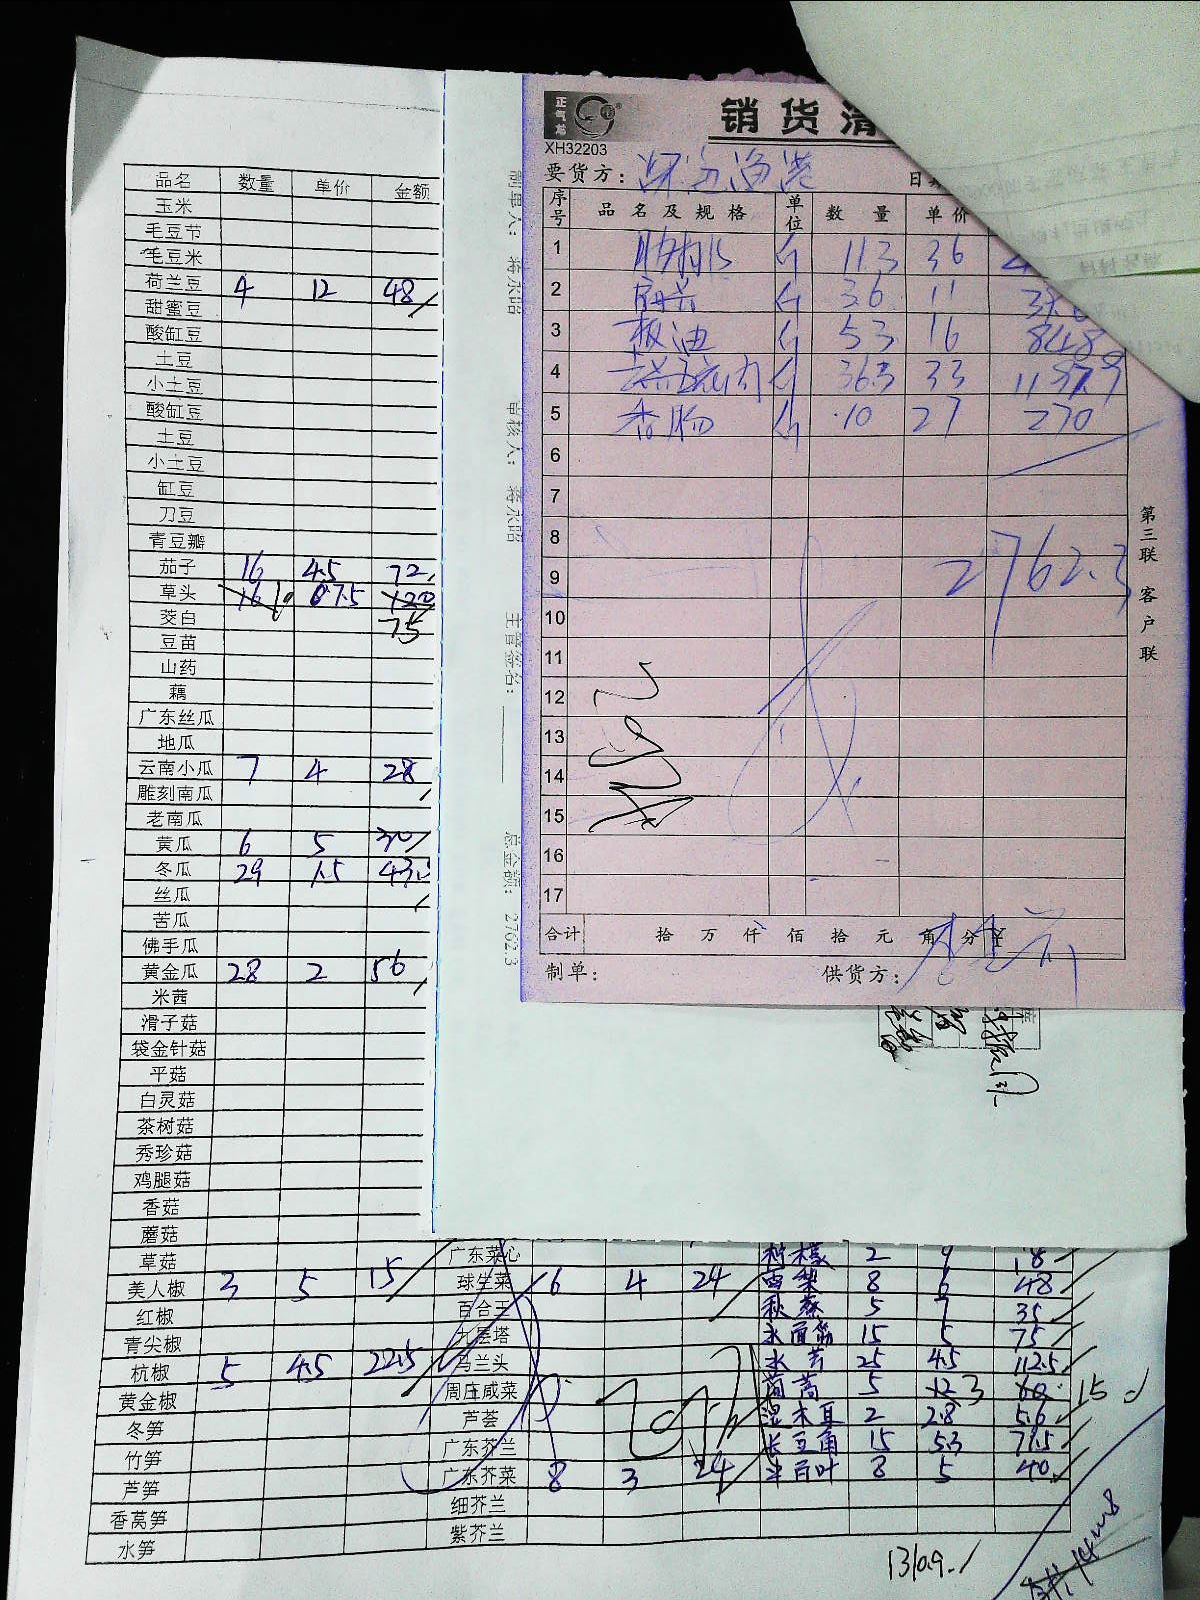 正气龙
销货清
XH32203
要货方：
序号 品名及规格 单位 数量 单价
1 11.3 36
2 3.6 11
3 板油 5.3 16 84.8
4 36.3 33 1197.9
5 香肠 10 27 270
6
7
8
9
2762.3
10
11
12
13
14
15
16
17
合计 拾 万 仟 佰 拾 元 角 分 ¥
制单： 供货方：
第三联 客户联
制单人： 蒋永昭 审核人： 蒋永昭 主管签名： 总金额： 2762.3
品名 数量 单价 金额
玉米
毛豆节
毛豆米
荷兰豆 4 12 48
甜蜜豆
酸缸豆
土豆
小土豆
酸缸豆
土豆
小土豆
缸豆
刀豆
青豆瓣
茄子 16 4.5 72
草头 16 10 7.5 120
茭白 75
豆苗
山药
藕
广东丝瓜
地瓜
云南小瓜 7 4 28
雕刻南瓜
老南瓜
黄瓜 6 5 30
冬瓜 29 1.5 43.
丝瓜
苦瓜
佛手瓜
黄金瓜 28 2 56
米茜
滑子菇
袋金针菇
平菇
白灵菇
茶树菇
秀珍菇
鸡腿菇
香菇
蘑菇
草菇 广东菜心 柠檬 2 9 18
美人椒 3 5 15 球生菜 6 4 24 西梨 8 6 48
红椒 百合王 5 7 35
青尖椒 九层塔 水面筋 15 5 75
杭椒 5 4.5 22.5 马兰头 水芹 25 4.5 112.5
黄金椒 周庄咸菜 茼蒿 5 12 3 60 15
冬笋 芦荟 湿木耳 2 2.8 5.6
竹笋 广东芥兰 长豆角 15 5.3 79.5
芦笋 广东芥菜 8 3 24 百叶 8 5 40
香莴笋 细芥兰
水笋 紫芥兰
1310.9